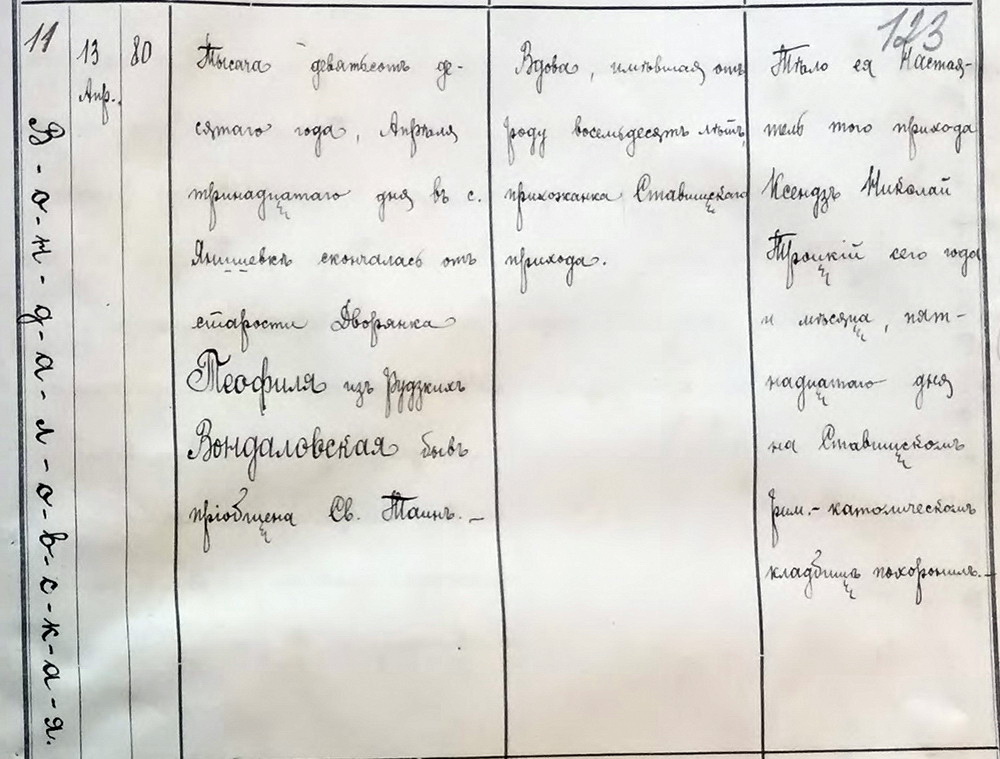 123
11
В-о-н-д-а-л-о-в-с-к-а-я.
13
Апр.
80
Тысяча девятьсотъ де-
сятаго года, Апрѣля
тринадцатаго дня въ с.
Янишевкѣ скончалась отъ
старости Дворянка
Теофиля изъ Рудзкихъ
Вондаловская бывъ
пріобщена Св. Таинъ.—
Вдова, имѣвшая отъ
роду восемьдесятъ лѣтъ,
прихожанка Ставищскаго
прихода.
Тѣло ея Настоя-
тель того прихода
Ксендзъ Николай
Троцкій сего года
и мѣсяца, пят-
надцатаго дня
на Ставищскомъ
рим.-католическомъ
кладбищѣ похоронилъ.—